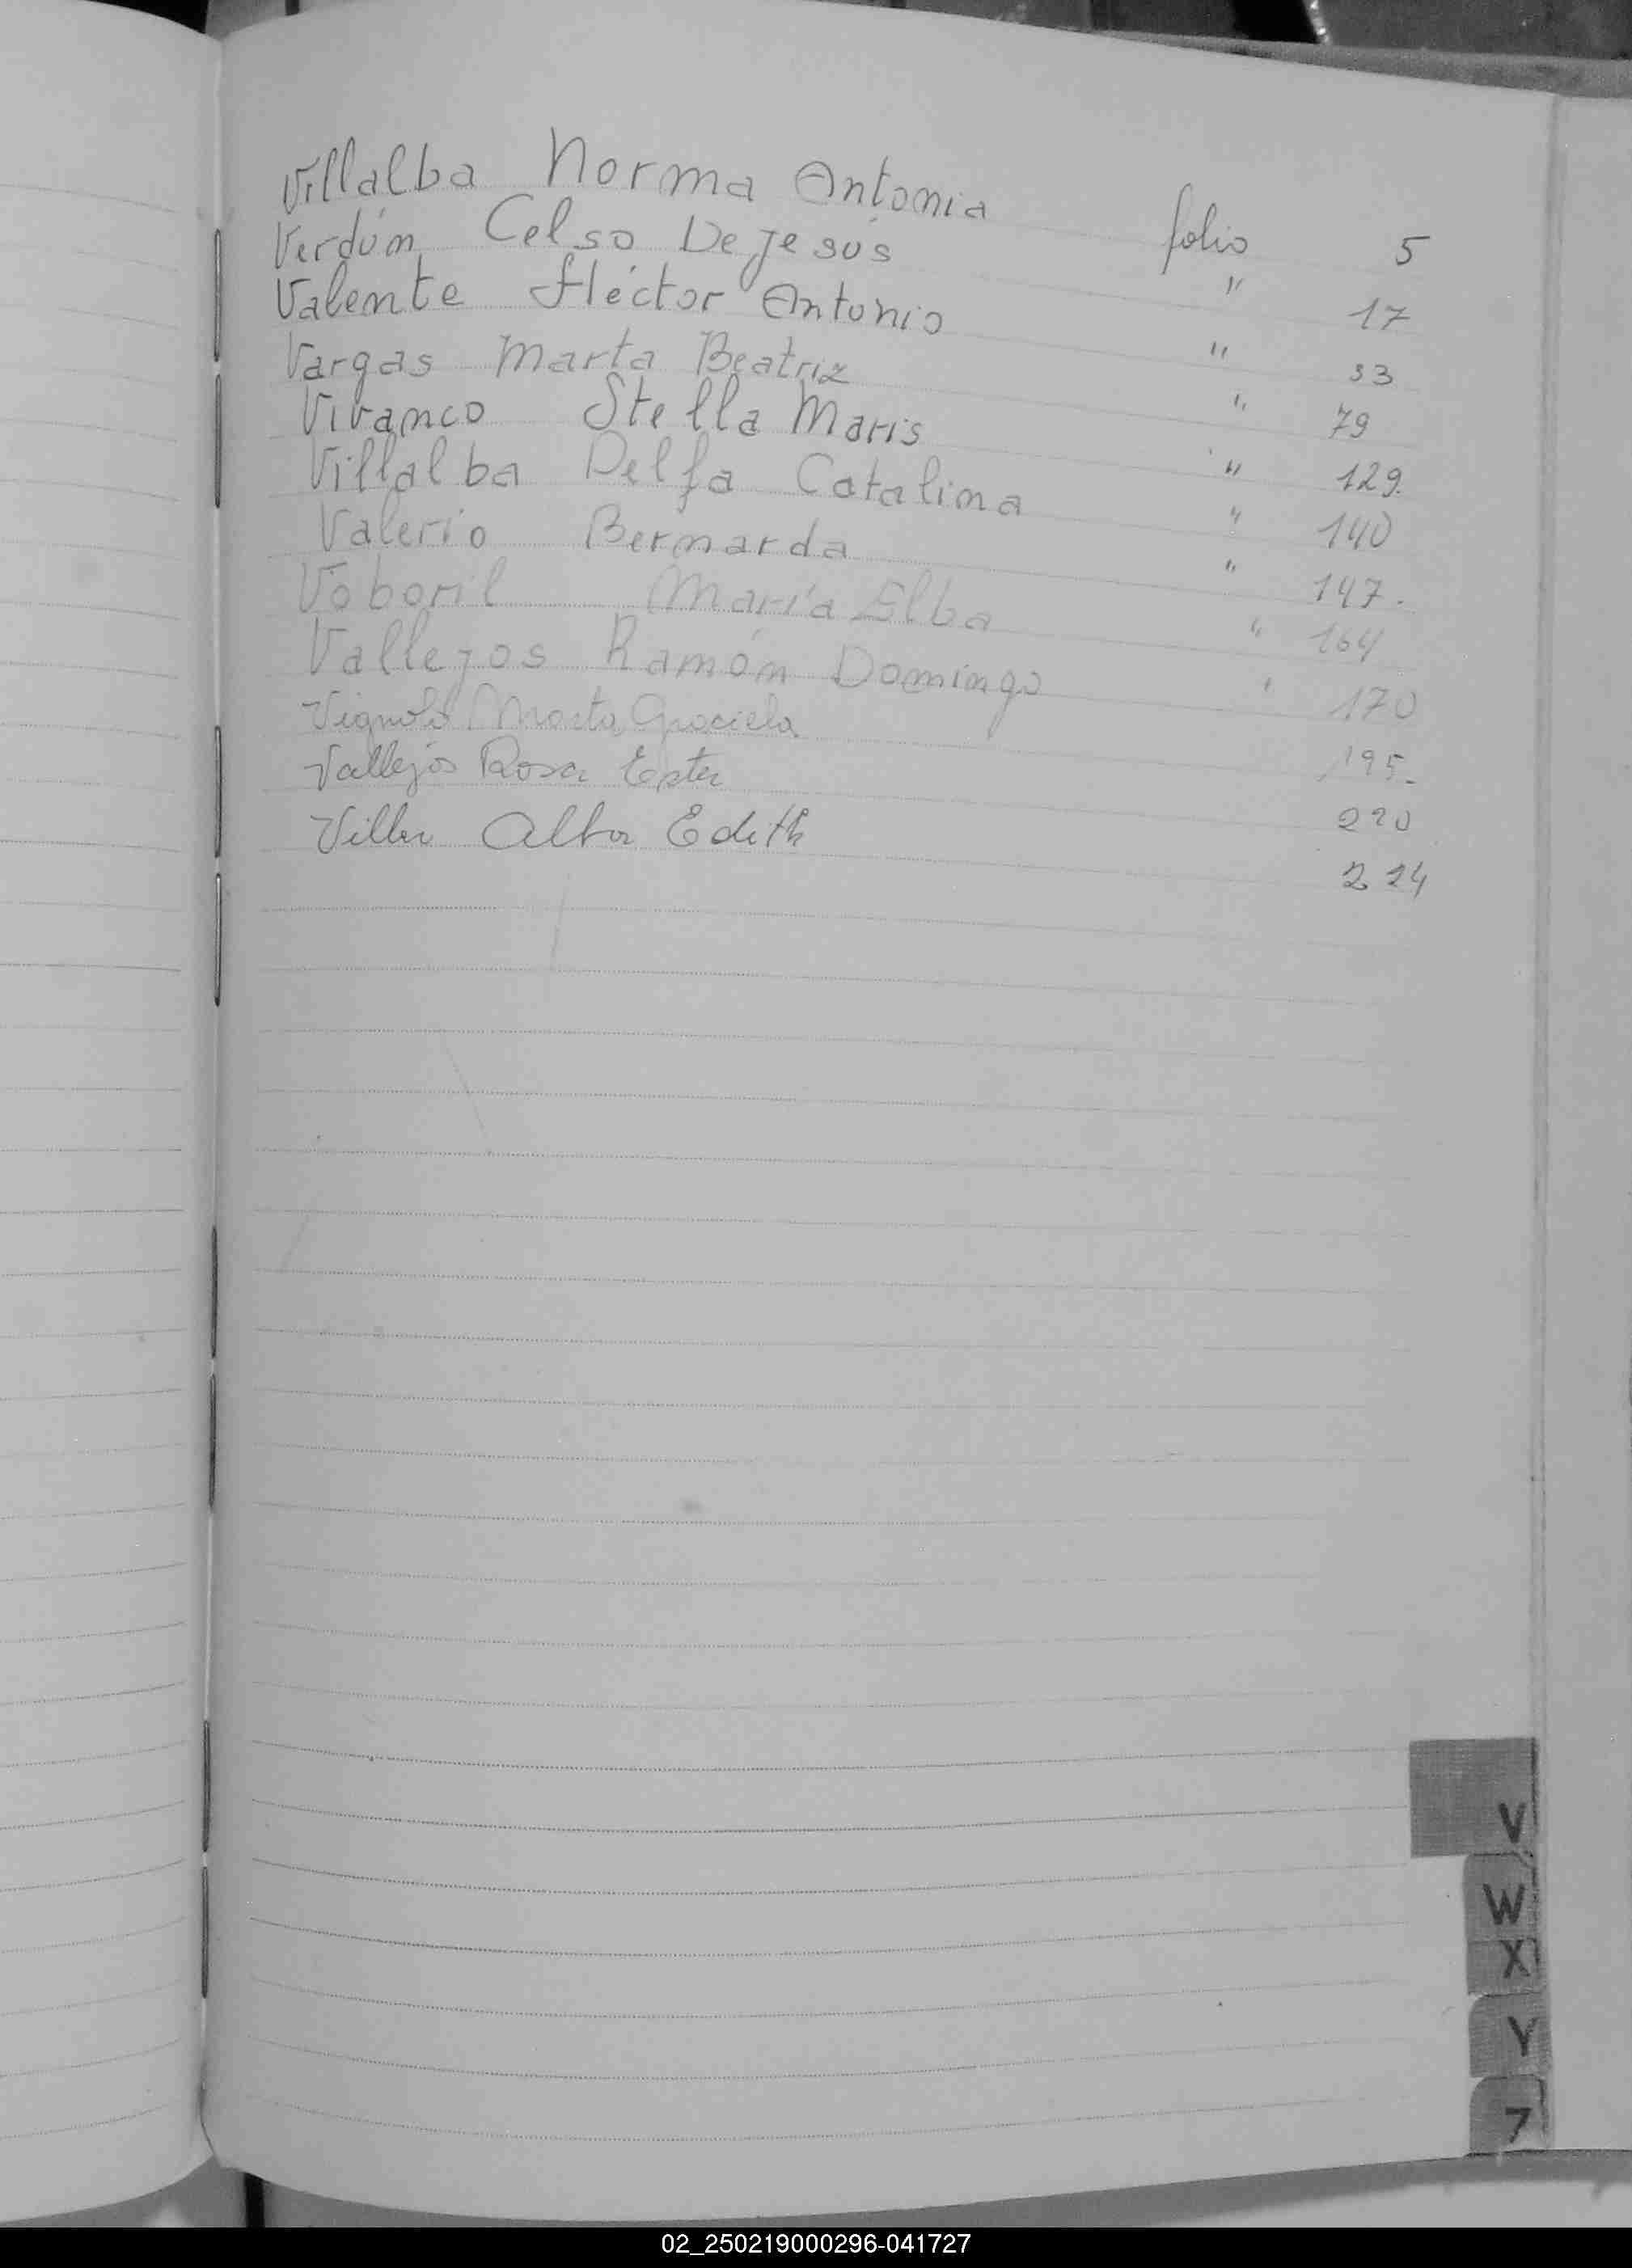 Villalba Norma Antonia folio 5
Verdún Celso De Jesús " 17
Valente Héctor Antonio " 33
Vargas Marta Beatriz " 79
Vivanco Stella Maris " 129.
Villalba Delfa Catalina " 140
Valerio Bernarda " 147.
Voboril María Elba " 164
Vallejos Ramón Domingo " 170
Vignolo Marta Graciela 195.
Vallejos Rosa Ester 220
Villa Alba Edith 224
V
W
X
Y
Z
02_250219000296-041727